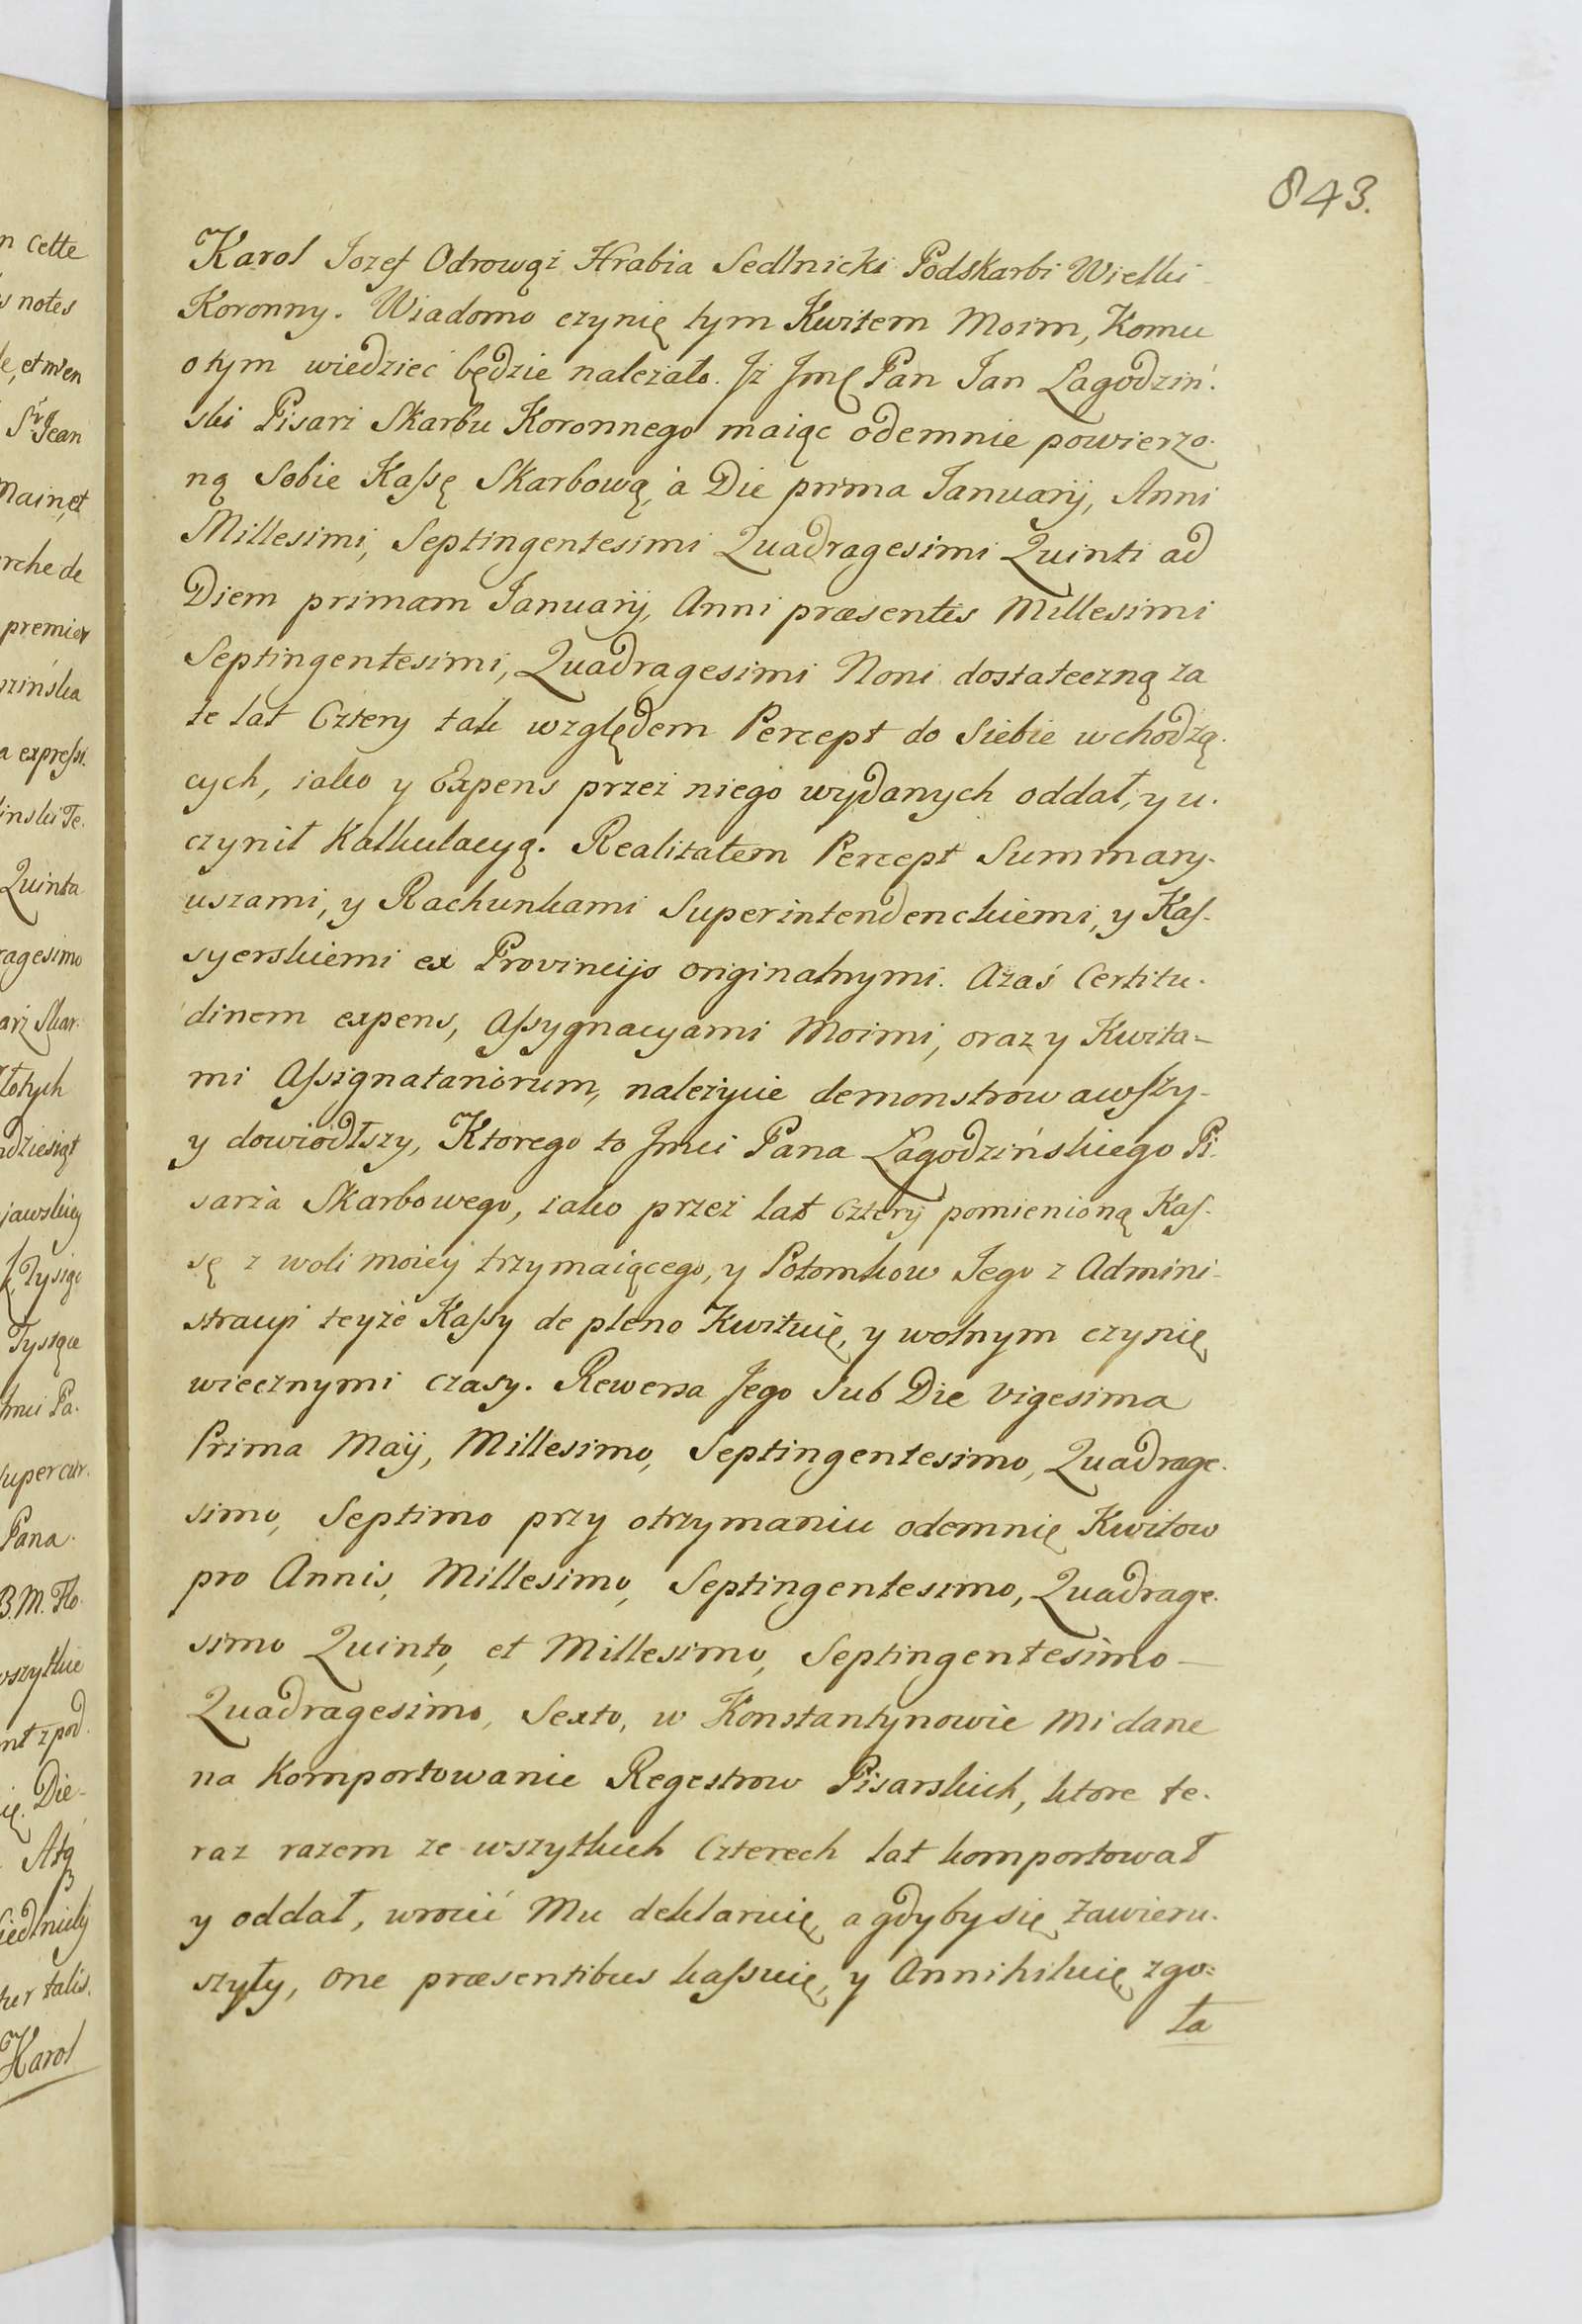 843.
Karol Jozef Odrowąż Hrabia Sedlnicki Podskarbi Wielki
Koronny. Wiadomo czynię tym Kwitem Moim, Komu
o tym wiedzieć będzie należało. Jż Jmć Pan Jan Łagodziń-
ski Pisarz Skarbu Koronnego maiąc odemnie powierzo-
ną Sobie Kassę Skarbową, à Die prima Januarij, Anni
Millesimi, Septingentesimi Quadragesimi Quinti ad
Diem primam Januarij, Anni præsentis Millesimi
Septingentesimi, Quadragesimi Noni dostateczną za
te lat Cztery tak względem Percept do Siebie wchodzą-
cych, iako y Expens przez niego wydanych oddał, y u-
czynił Kalkulacyą. Realitatem Percept Summary-
uszami, y Rachunkami Superintendenckiemi, y Kas-
syerskiemi ex Provincijs originalnymi. Azaś Certitu-
dinem expens, Assygnacyami Moimi, oraz y Kwita-
mi Assignatariorum, należycie demonstrowawszy-
y dowiodłszy, Ktorego to Jmci Pana Łagodzińskiego Pi-
sarza Skarbowego, iako przez lat Cztery pomienioną Kas-
sę z woli moiey trzymaiącego, y Potomkow Jego z Admini-
stracyi teyże Kassy de pleno Kwituię, y wolnym czynię
wiecznymi czasy. Rewersa Jego Sub Die vigesima
Prima Maij, Millesimo, Septingentesimo, Quadrage-
simo, Septimo przy otrzymaniu odemnię Kwitow
pro Annis, Millesimo, Septingentesimo, Quadrage-
simo Quinto, et Millesimo, Septingentesimo-
Quadragesimo, Sexto, w Konstantynowie mi dane
na Komportowanie Regestrow Pisarskich, ktore te-
raz razem ze wszytkich Czterech lat komportował
y oddał, wrocić Mu deklaruię, a gdyby się zawieru-
szyły, one præsentibus kassuię, y Annihiluię zgo=
ła